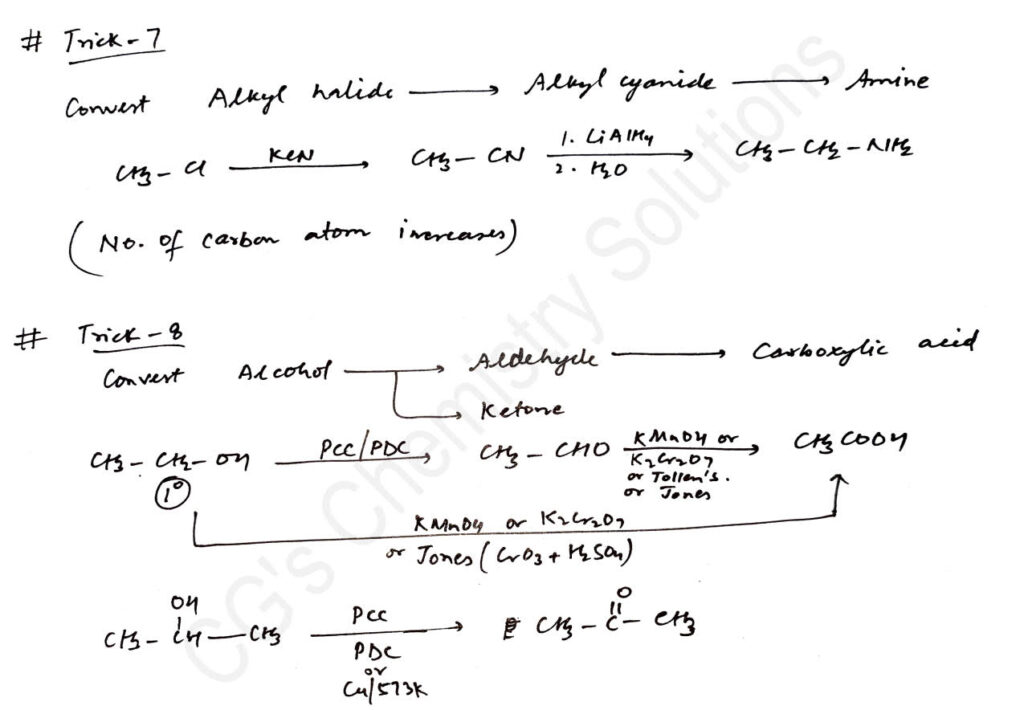 # Trick-7
Convert Alkyl halide → Alkyl cyanide → Amine
CH3-Cl KCN → CH3-CN 1. LiAlH4 2. H2O → CH3-CH2-NH2
(No. of carbon atom increases)
# Trick-8
Convert Alcohol → Aldehyde → Carboxylic acid
→ Ketone
CH3-CH2-OH PCC/PDC → CH3-CHO KMnO4 or K2Cr2O7 or Tollen's. or Jones → CH3COOH
1°
KMnO4 or K2Cr2O7
or Jones (CrO3+H2SO4)
OH
CH3-CH-CH3 PCC PDC or Cu/573K → CH3-C-CH3
O
CG's Chemistry Solutions